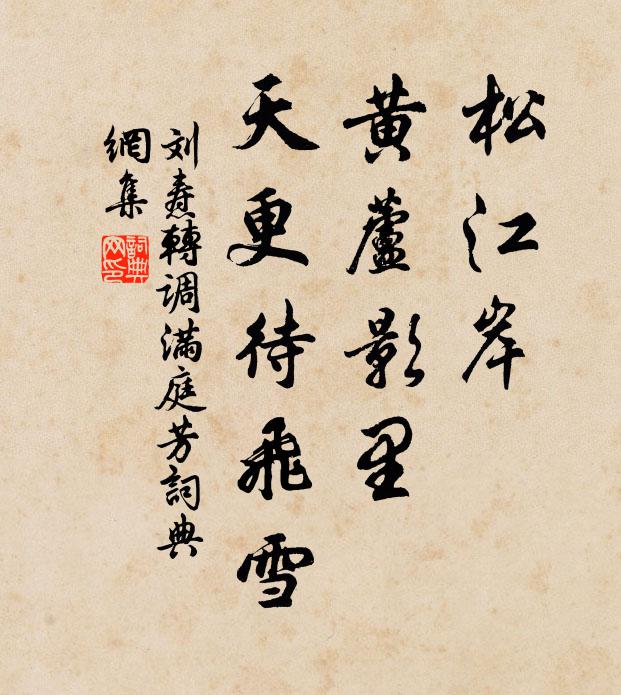 松江岸
黄蘆影里
天更待飛雪
刘燾轉调满庭芳詞典
網集
詞典
网印